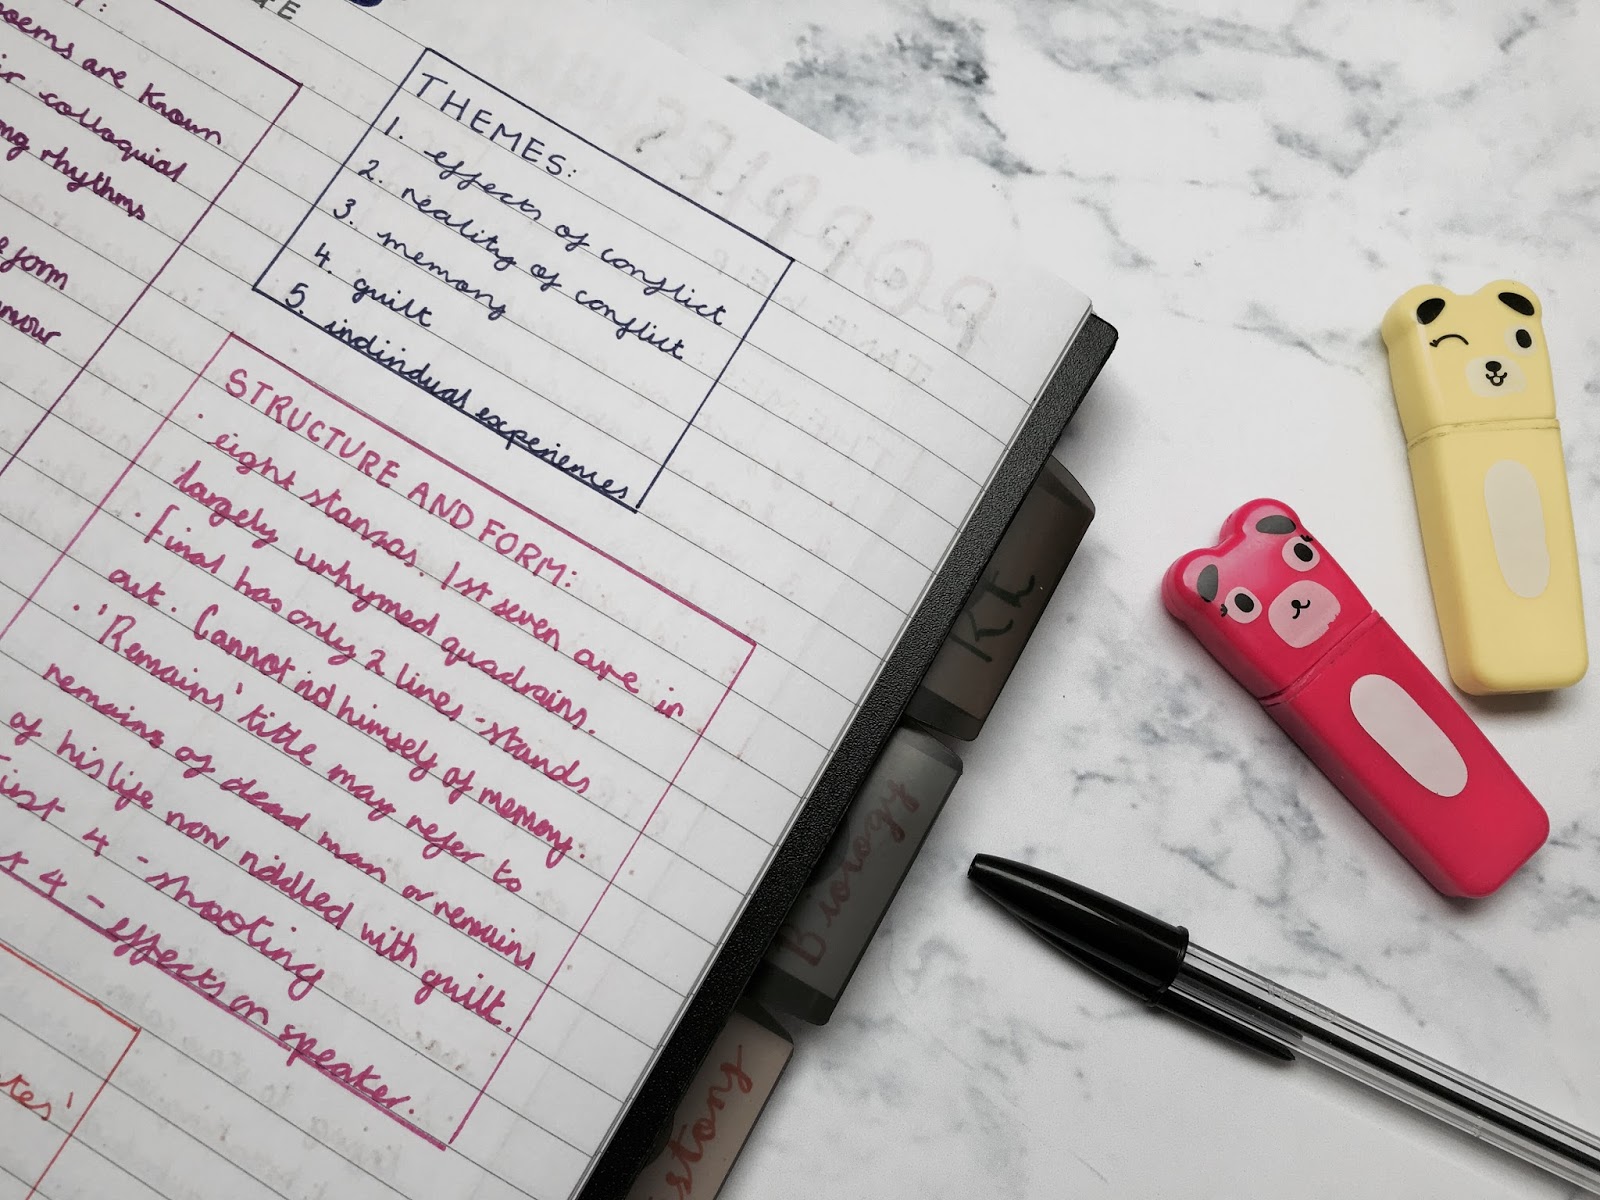 poems are known
colloquial
rhythms
form
THEMES:
1. effects of conflict
2. reality of conflict
3. memory
4. guilt
5. individual experiences
STRUCTURE AND FORM:
· eight stanzas. 1st seven are in
largely unrhymed quadrains.
· Final has only 2 lines - stands
out. Cannot rid himself of memory.
· 'Remains' title may refer to
remains of dead man or remains
of his life now riddled with guilt.
First 4 - shooting
4 - effects on speaker.
POPPIES
RE
Biology